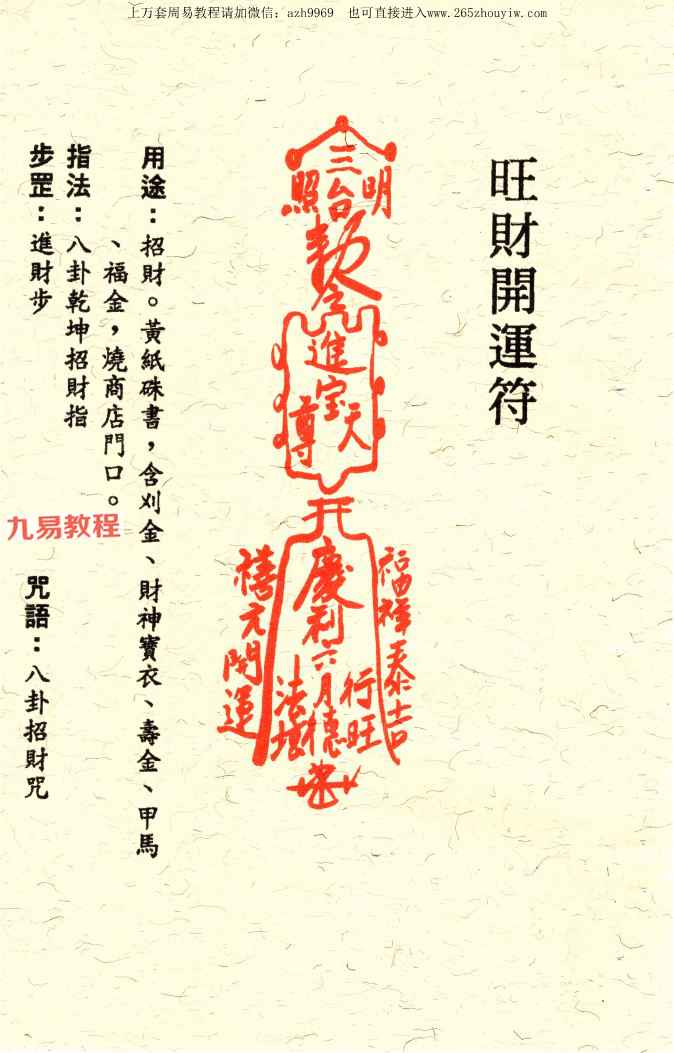 上万套周易教程请加微信：azh9969 也可直接进入www.265zhouyiw.com
旺財開運符
三台
明
照
敕令
進宝
天
尊
開
慶利
福祿
禧元開運
行旺
六月德
用途：招財。黃紙硃書，含刈金、財神寶衣、壽金、甲馬
、福金，燒商店門口。
指法：八卦乾坤招財指
步罡：進財步
咒語：八卦招財咒
九易教程